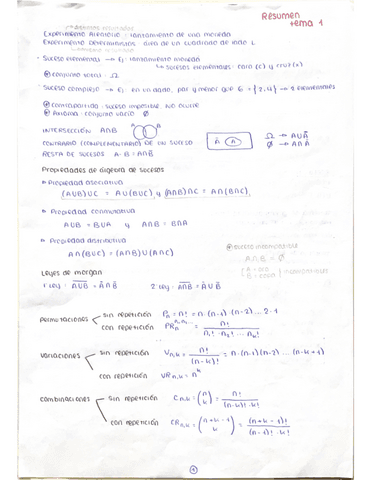 Resumen
tema 1
Experimento Aleatorio = lanzamiento de una moneda
Experimento Determinista área de un cuadrado de lado L
· Suceso elemental → Ej: lanzamiento moneda
↳ Sucesos elementales = cara (c) y cruz (x)
conjunto total = Ω
· Suceso complejo → Ej en un dado, par y menor que 6 = {2,4} → 2 elementales
contrapartida: suceso imposible. NO ocurre
conjunto vacío Ø
INTERSECCIÓN A∩B
CONTRARIO (COMPLEMENTARIO) DE UN SUCESO
Ā A
Ω → A∪Ā
Ø → A∩Ā
RESTA DE SUCESOS A-B = A∩B̄
Propiedades de álgebra de sucesos
Propiedad asociativa
(A∪B)∪C = A∪(B∪C) y (A∩B)∩C = A∩(B∩C)
Propiedad conmutativa
A∪B = B∪A y A∩B = B∩A
Propiedad distributiva
A∩(B∪C) = (A∩B)∪(A∩C)
A∩B = Ø
Leyes de morgan
1º Ley = \overline{A∪B} = Ā∩B̄ 2º Ley = \overline{A∩B} = Ā∪B̄
permutaciones sin repetición Pn = n! = n·(n-1)·(n-2)...2·1
con repetición PR = n! / n₁!·n₂!...nₖ!
variaciones sin repetición Vn,k = n! / (n-k)! = n·(n-1)(n-2)...(n-k+1)
con repetición VRn,k = n^k
combinaciones sin repetición Cn,k = (n k) = n! / (n-k)!·k!
con repetición CRn,k = (n+k-1 k) = (n+k-1)! / (n-1)!·k!
1